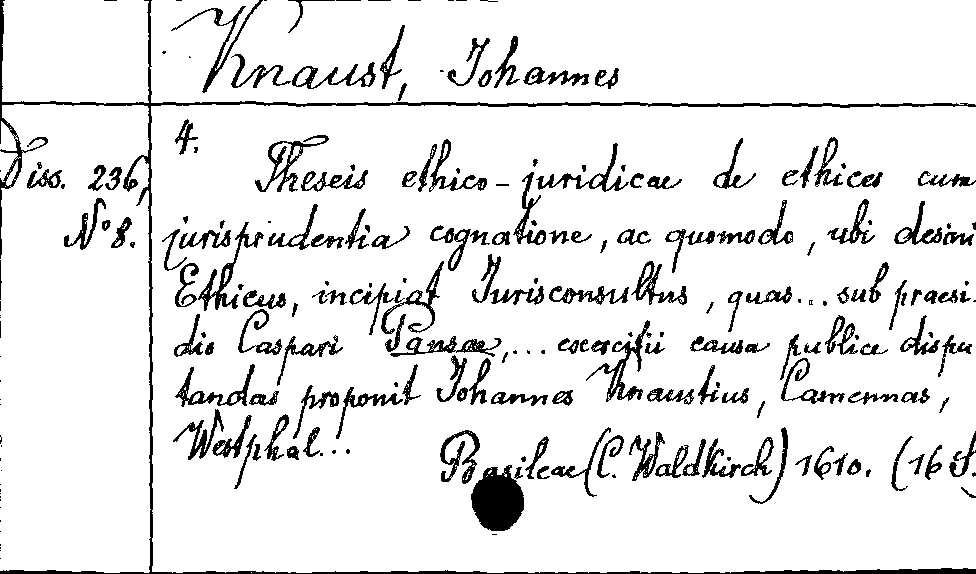 Knaust, Johannes
4.
Diss. 236,
No 8.
Theseis ethico-juridicae de ethices cum
jurisprudentia cognatione, ac quomodo, ubi desini
Ethicus, incipiat Jurisconsultus, quas... sub praesi-
dio Caspari Pansae,... exercitii causa publice dispu
tandas proponit Johannes Knaustius, Camennas,
Westphal...
Basileae (C. Waldkirch) 1610. (16 S.